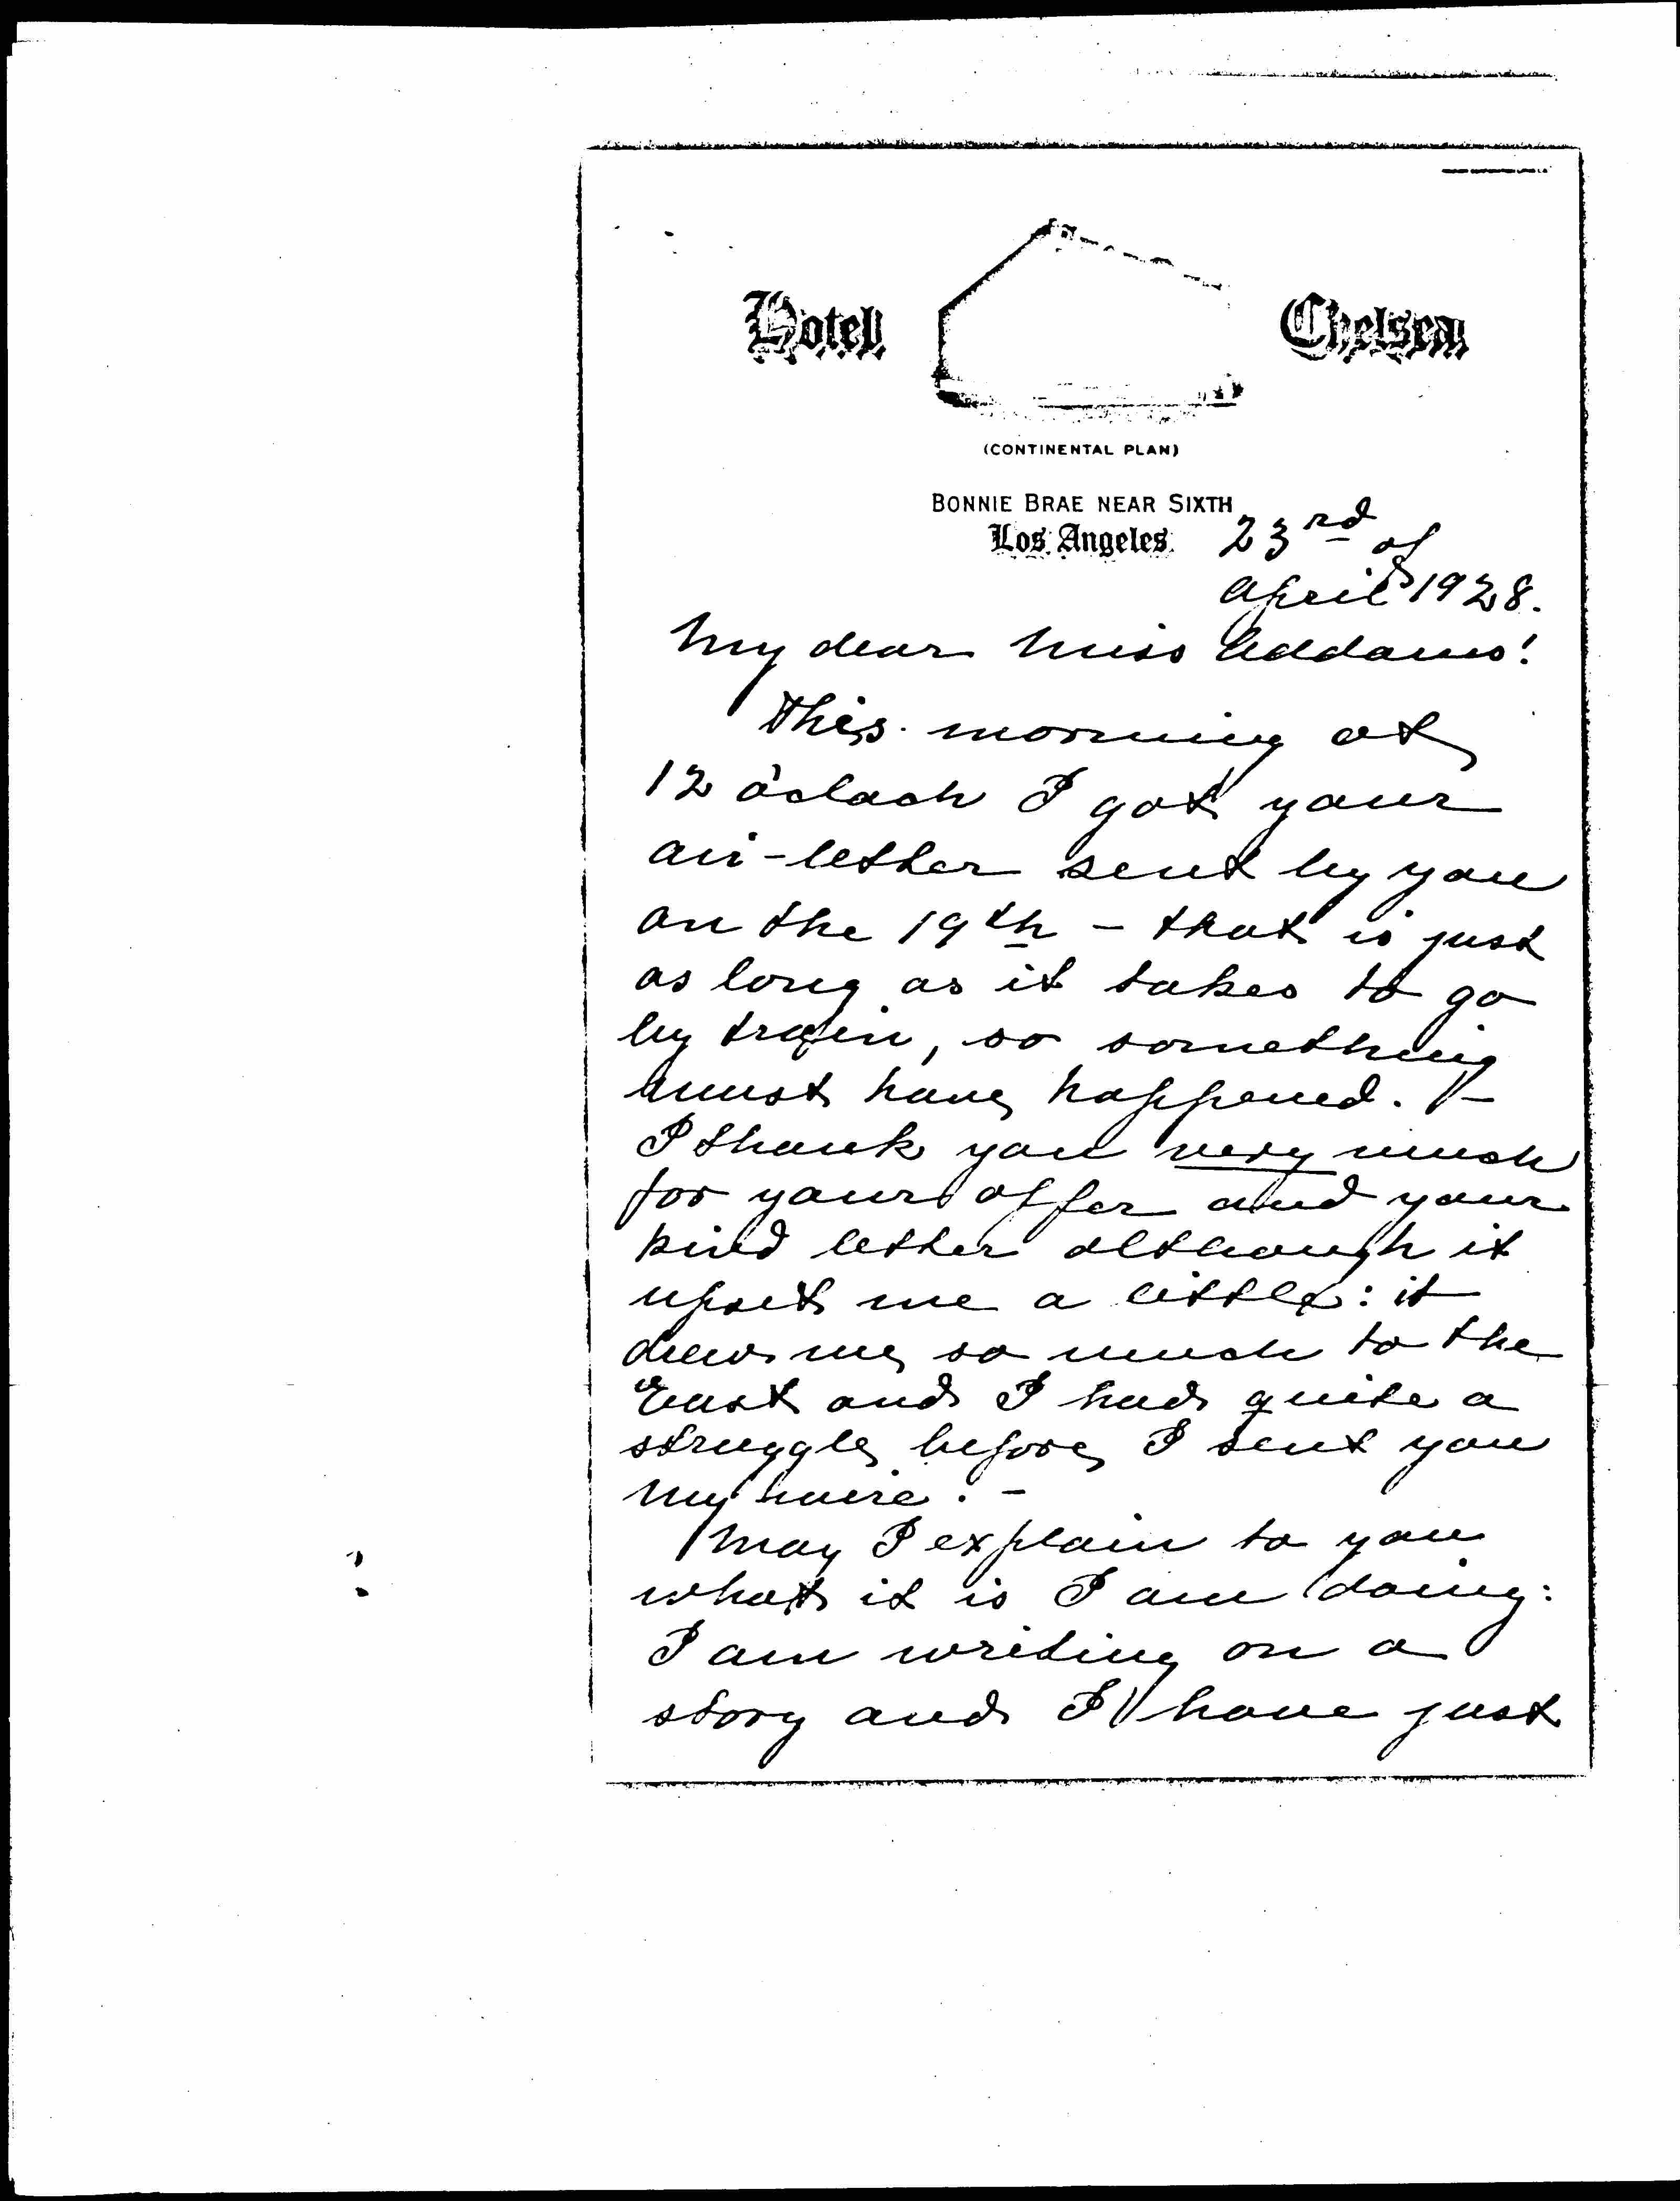 Hotel Chelsea
(CONTINENTAL PLAN)
BONNIE BRAE NEAR SIXTH
Los Angeles 23rd of
April 1928.
My dear Miss Addams!
This morning at
12 o'clock I got your
air-letter sent by you
on the 19th - that is just
as long as it takes to go
by train, so something
must have happened. -
I thank you very much
for your offer and your
kind letter although it
upset me a little: it
drew me so much to the
East and I had quite a
struggle before I sent you
my wire. -
May I explain to you
what it is I am doing:
I am writing on a
story and I have just